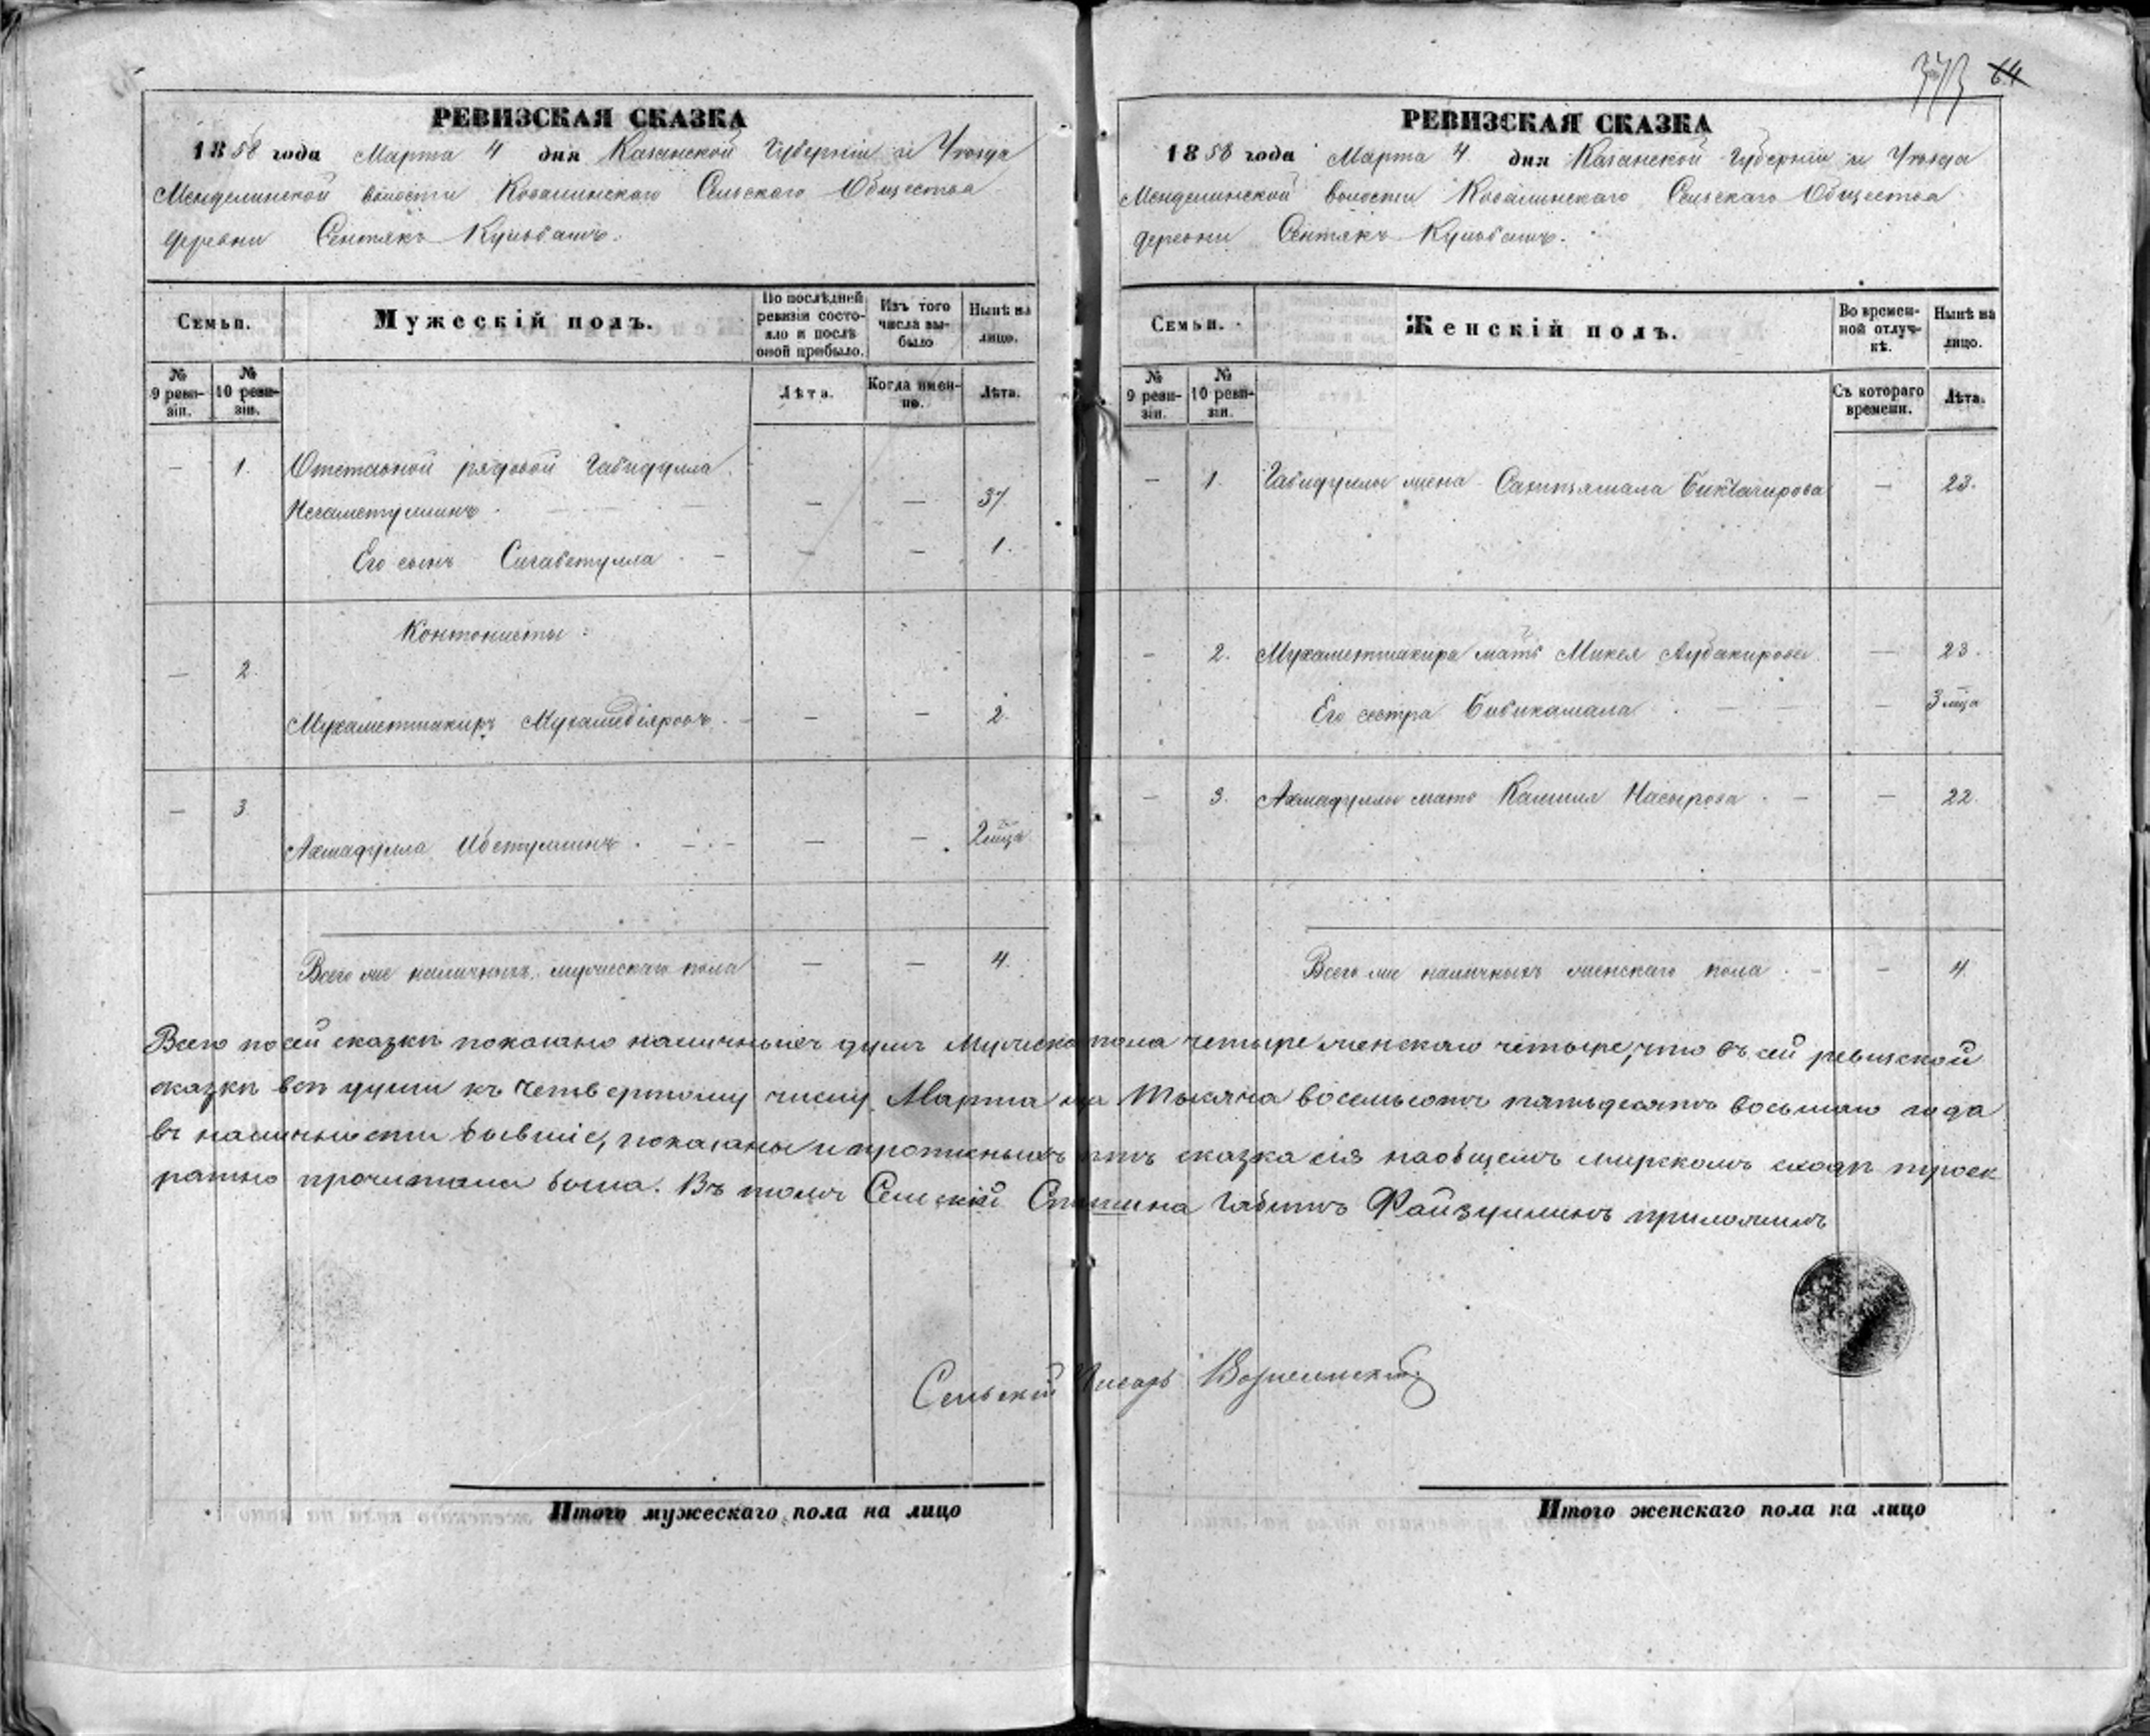 373 64
РЕВИЗСКАЯ СКАЗКА
1858 года Марта 4 дня Казанской Губерніи и Уѣзда
Менделинской волости Ковалинскаго Сельскаго Общества
деревни Сентякъ Кульбашъ.
Семьи.
Мужескій полъ.
По послѣдней ревизіи состояло и послѣ оной прибыло.
Изъ того числа выбыло
Нынѣ на лицо.
№ 9 ревизіи.
№ 10 ревизіи.
Лѣта.
Когда именно.
Лѣта.
— 1. Отставной рядовой Габидулла
Негаметуллинъ — — 37.
Его сынъ Сигабетулла — — — 1.
Кантонисты:
— 2.
Мухаметшакиръ Мухамедіяровъ — — 2.
— 3
Ахмадулла — — 2 мѣца
Всего же наличныхъ мужескаго пола — — 4.
РЕВИЗСКАЯ СКАЗКА
1858 года Марта 4 дня Казанской Губерніи и Уѣзда
Менделинской волости Ковалинскаго Сельскаго Общества
деревни Сентякъ Кульбашъ.
Семьи.
Женскій полъ.
Во временной отлучкѣ.
Нынѣ на лицо.
№ 9 ревизіи.
№ 10 ревизіи.
Съ котораго времени.
Лѣта.
— 1. Габидуллы жена Биктагирова — 23.
— 2. Мухаметшакира мать Аубакирова — 23.
Его сестра Бибикамала — 3 мѣца
— 3. Ахмадуллы мать Насырова — — 22.
Всего же наличныхъ женскаго пола — — 4.
Всего по сей сказкѣ показано наличныхъ душъ Мужеска пола четыре женскаго четыре, что въ сей ревизской
сказкѣ всѣ души къ четвертому числу Марта Тысяча восемьсотъ пятьдесятъ восьмаго года
въ наличности бывшіе, показаны и прописныхъ нѣтъ сказка сія на общемъ мирскомъ сходѣ троек
ратно прочитана была. Въ томъ Сельскій Старшина Габитъ Файзуллинъ приложилъ
Сельскій Писарь
Итого мужескаго пола на лицо
Итого женскаго пола на лицо